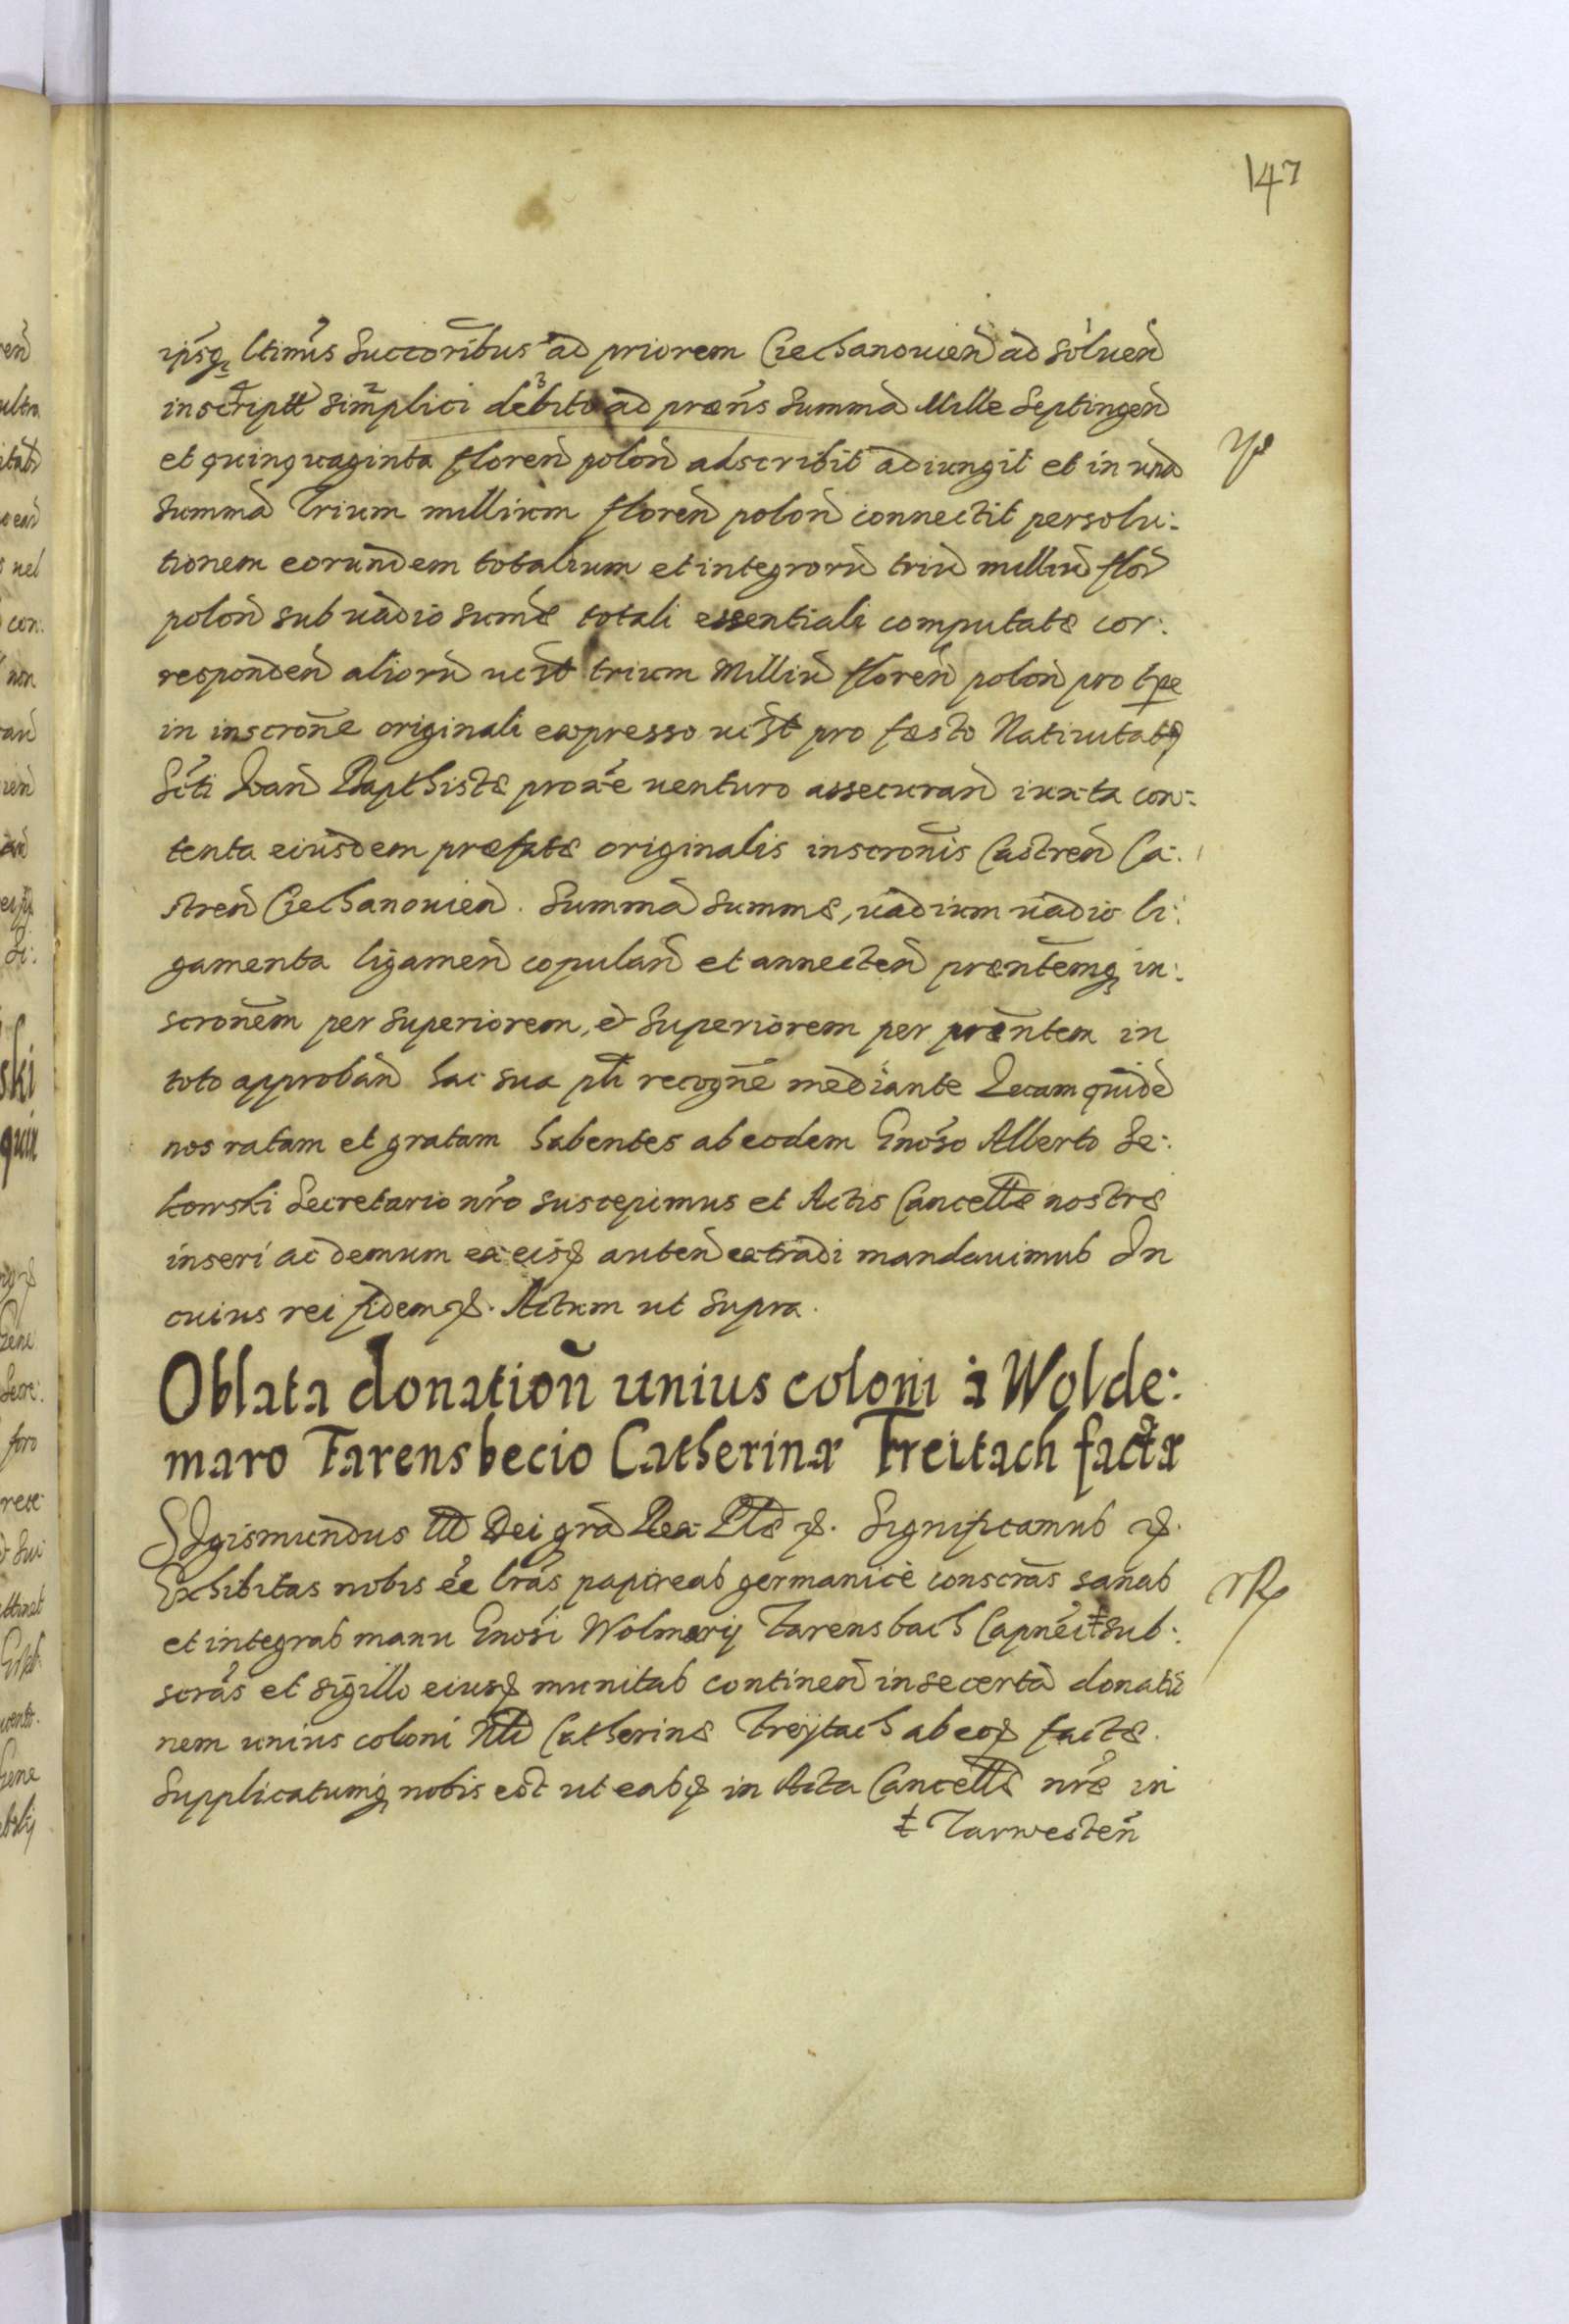 147
ipsq ltimis Succoribus ad priorem Ciechanouien ad soluen
inscript simplici debito ad praens summa Mille Septingen
et quinquaginta floren polon adscribit adiungit et in una
summa Trium millium floren polon connectit persolu:
tionem eorundem totalium et integroru triu milliu flor
polon sub uadio sumae totali essentiali computatae cor:
responden alioru uclt trium Milliu floren polon pro tpe
in inscrone originali expresso uclt pro faesto Natiuitatis
Scti Joan Bapthistae proxe venturo assecuran iuxta con:
tenta eiusdem praefatae originalis inscronis Castren Ca:
stren Ciechanouien. Summa summae, uadium uadio li:
gamenta ligamen copulan et annecten praentemq in:
scronem per superiorem, et superiorem per praentem in
toto approban hac sua pnti recogne mediante Quam quide
nos ratam et gratam habentes ab eodem Gnoso Alberto Se:
kowski Secretario nro suscepimus et Actis Cancellae nostrae
inseri ac demum ex eisd auten extradi mandauimus In
cuius rei fidem etc. Actum ut supra.
Oblata donation unius coloni a Wolde:
maro Farensbecio Catherinae Freitach factae
Sigismundus III Dei gra Rex Plae etc. Significamus etc.
Exhibitas nobis ee lras papireas germanice conscras sanas
et integras manu Gnosi Wolmarij Farensbach Capnei ‡ sub:
scras et sigillo eiusd munitas continen in se certa donatio
nem unius coloni Catherinae Freijtach ab eod factae.
Supplicatumq nobis est ut easd in Acta Cancellae nrae in
‡ Tarwesten